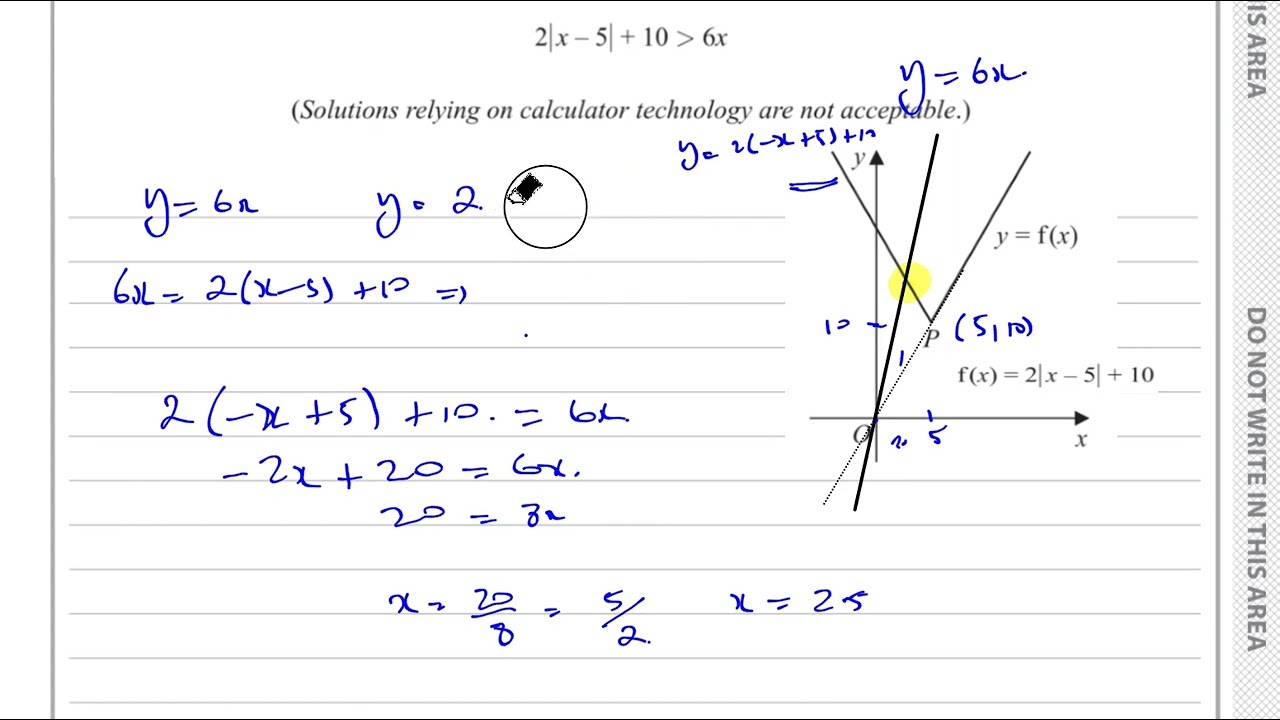 2|x – 5| + 10 > 6x
y = 6x.
(Solutions relying on calculator technology are not acceptable.)
y = 2(-x+5)+10
y
y = 6x
y = 2.
y = f(x)
6x = 2(x-5) +10 =>
10
P (5,10)
f(x) = 2|x – 5| + 10
2(-x+5) +10. = 6x.
O
5
x
-2x + 20 = 6x.
20 = 8x
x = 20/8 = 5/2. x = 2.5
HIS AREA
DO NOT WRITE IN THIS AREA